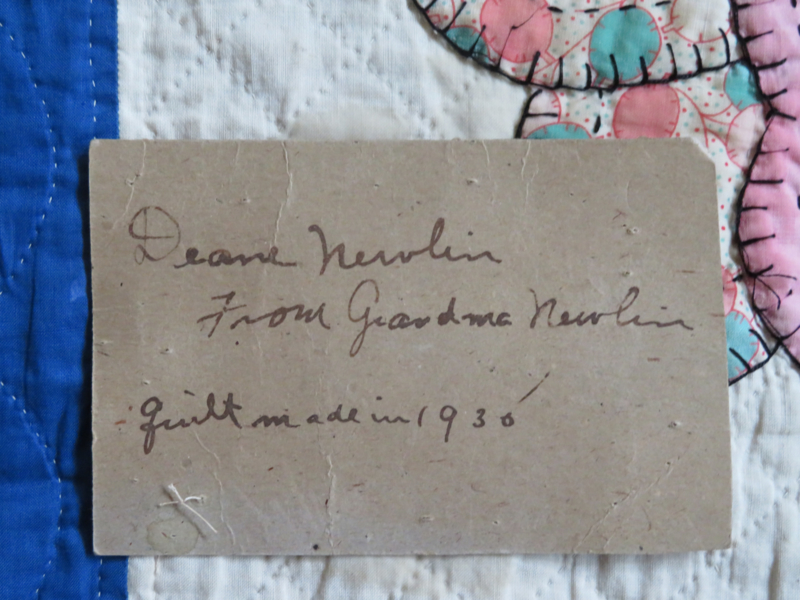 Deane Newlin
From Grandma Newlin
Quilt made in 1935